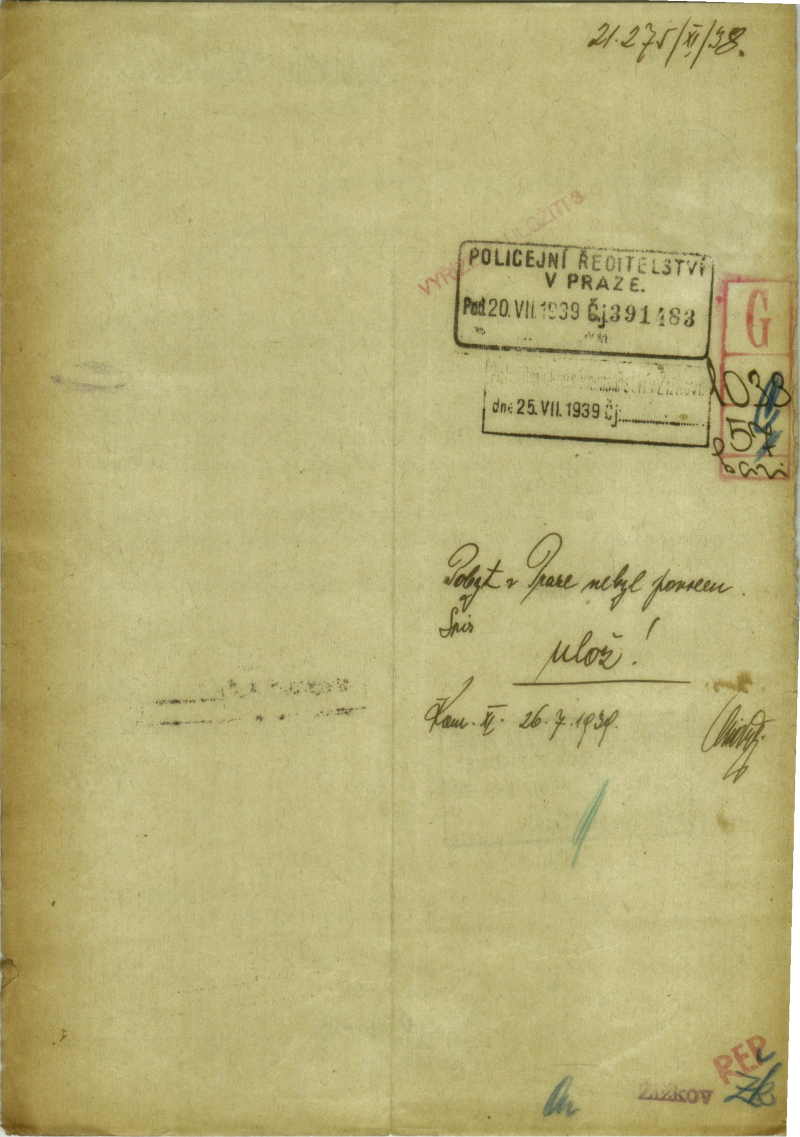 21.275/XI/38.
POLICEJNÍ ŘEDITELSTVÍ
V PRAZE.
Pod. 20. VII. 1939 Čj. 391483
dne 25. VII. 1939 Čj.
G
1038
57
Pobyt v Praze nebyl povolen.
Spis
ulož!
Kom. XI. 26.7.1939.
REP
ŽIŽKOV